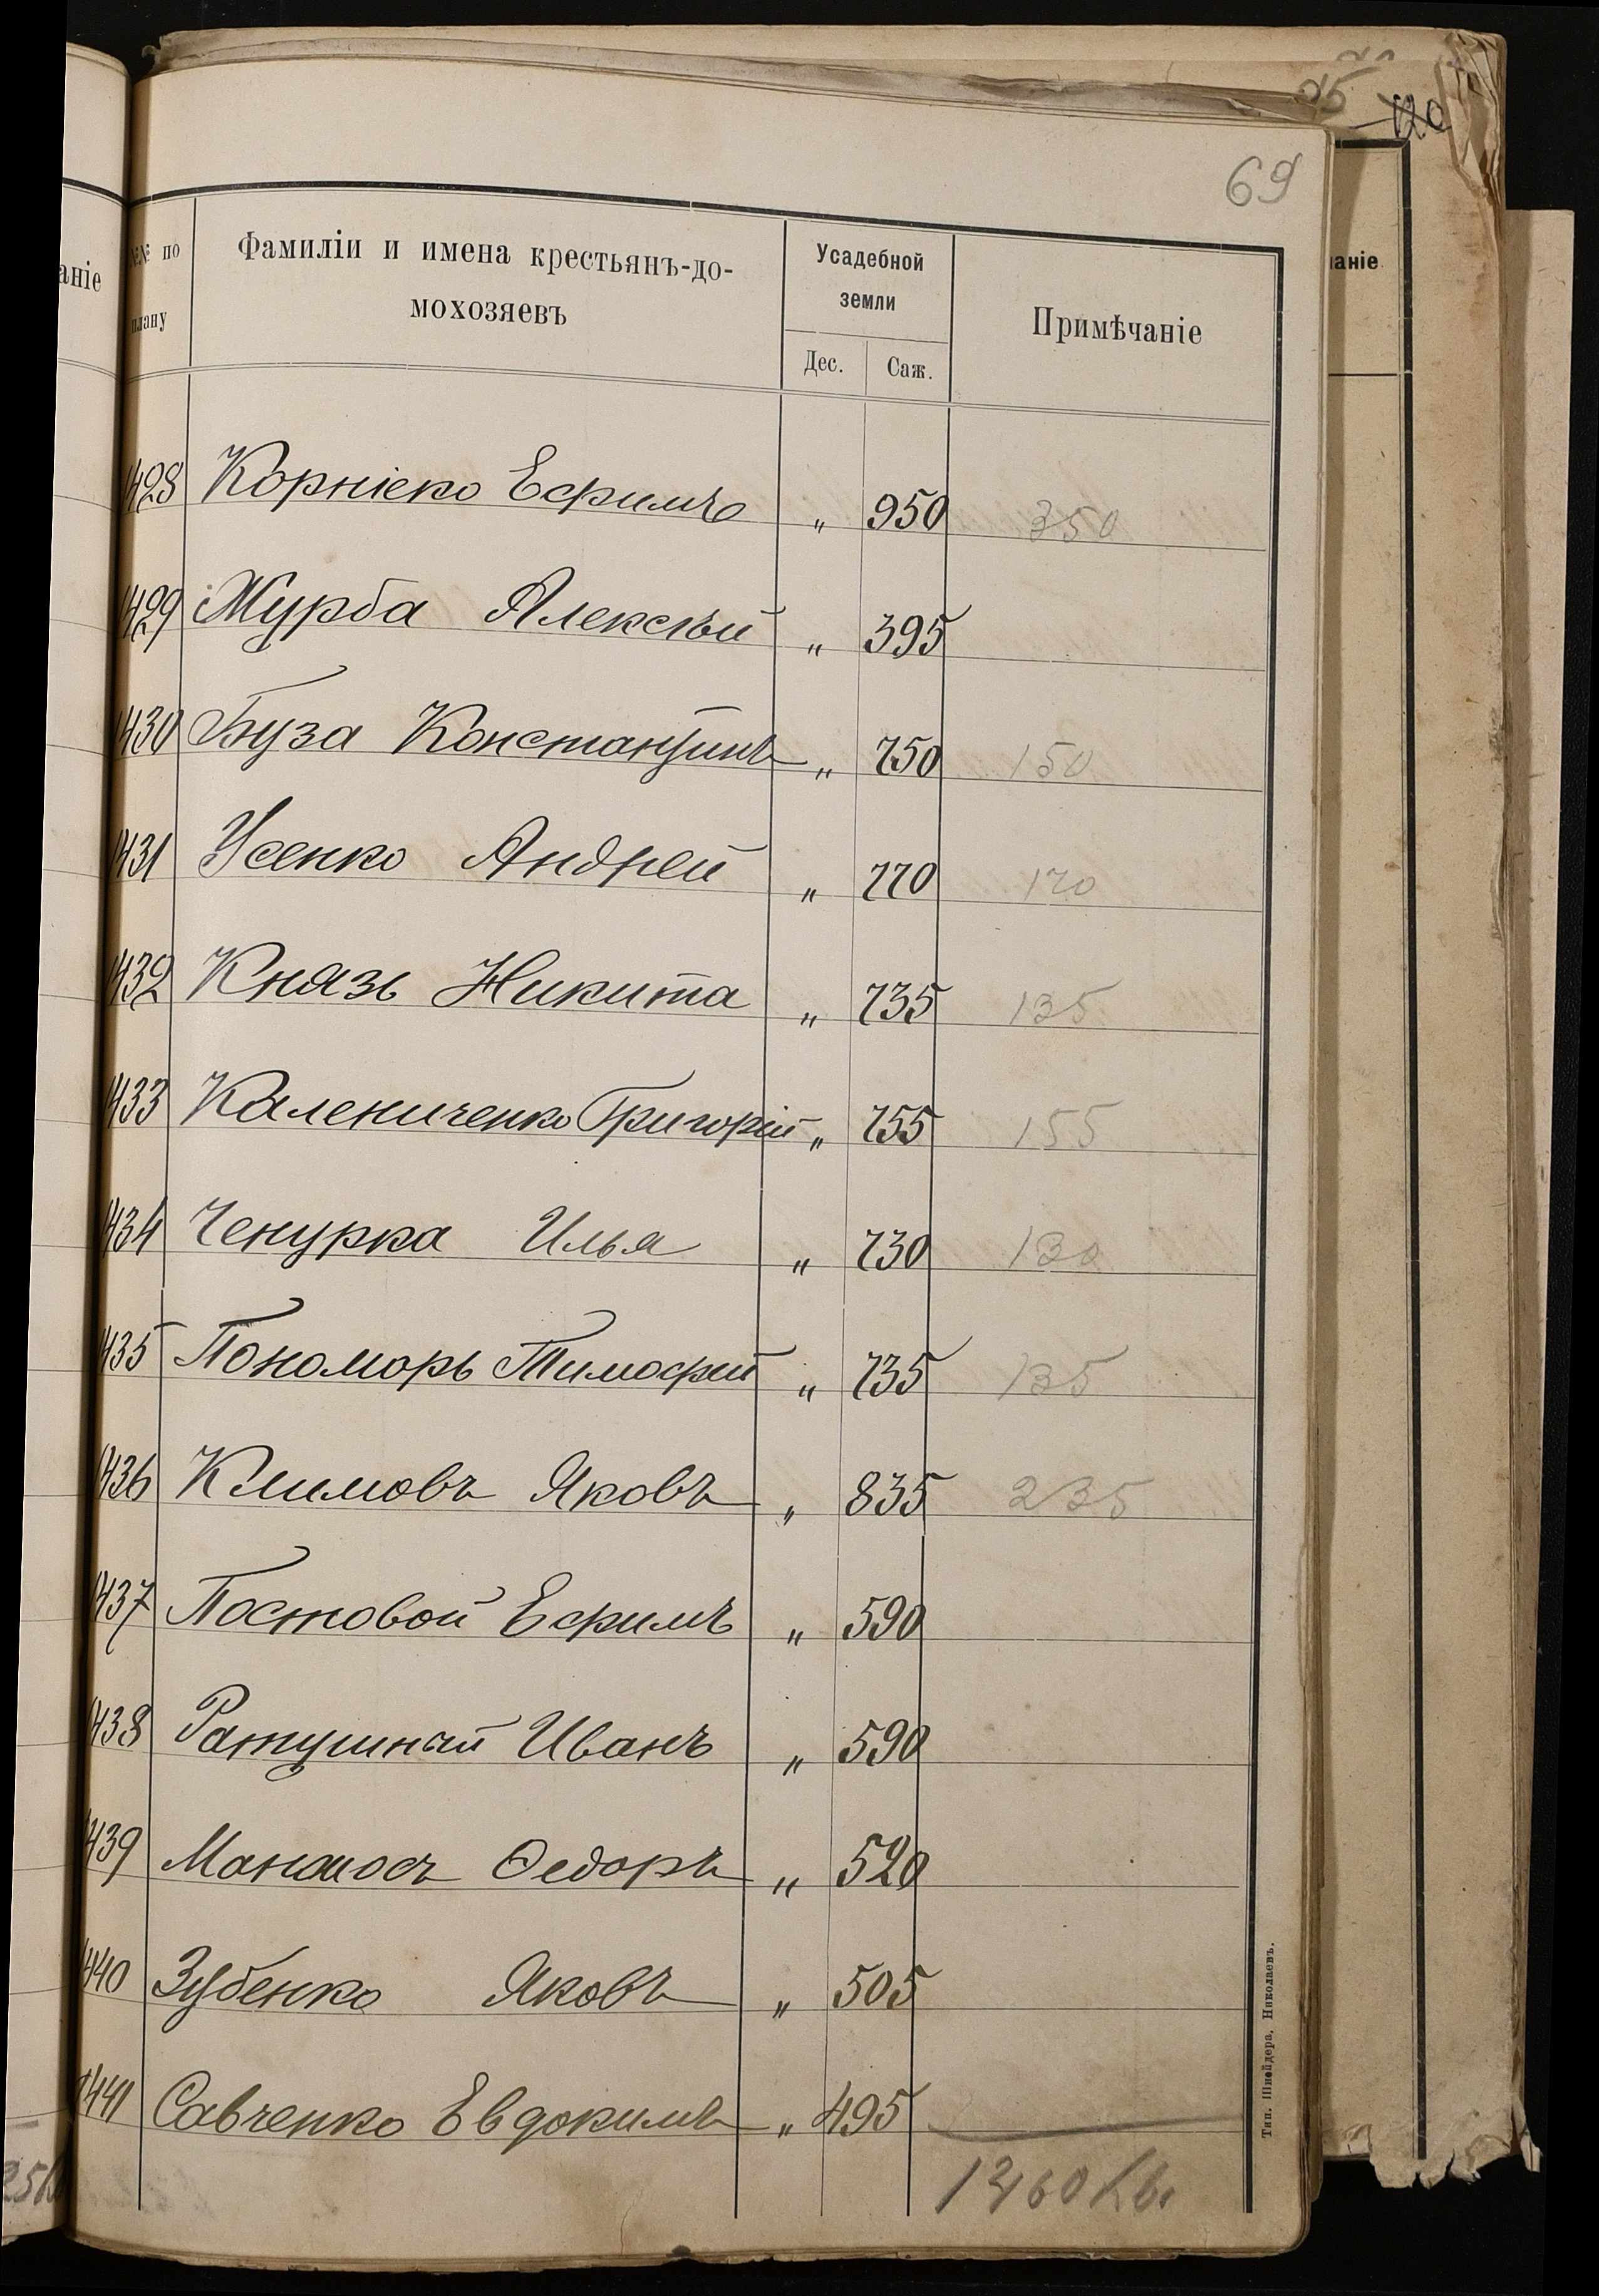 69
№№ по плану
Фамиліи и имена крестьянъ-до-
мохозяевъ
Усадебной
земли
Дес. Саж.
Примѣчаніе
аніе
чаніе
428 Корніеко Ефимъ „ 950 350
429 Журба Алексѣй „ 395
430 Буза Константинъ „ 750 150
431 Усенко Андрей „ 770 170
432 Князь Никита „ 735 135
433 Калениченко Григорій „ 755 155
434 Ченурка Илья „ 730 130
435 Пономорь Тимофей „ 735 135
436 Климовъ Яковъ „ 835 235
437 Постовой Ефимъ „ 590
438 Ратушный Иванъ „ 590
439 Ѳедоръ „ 520
440 Зубенко Яковъ „ 505
441 Савченко Евдокимъ „ 495
1460 кв.
Тип. Шнейдера, Николаевъ.